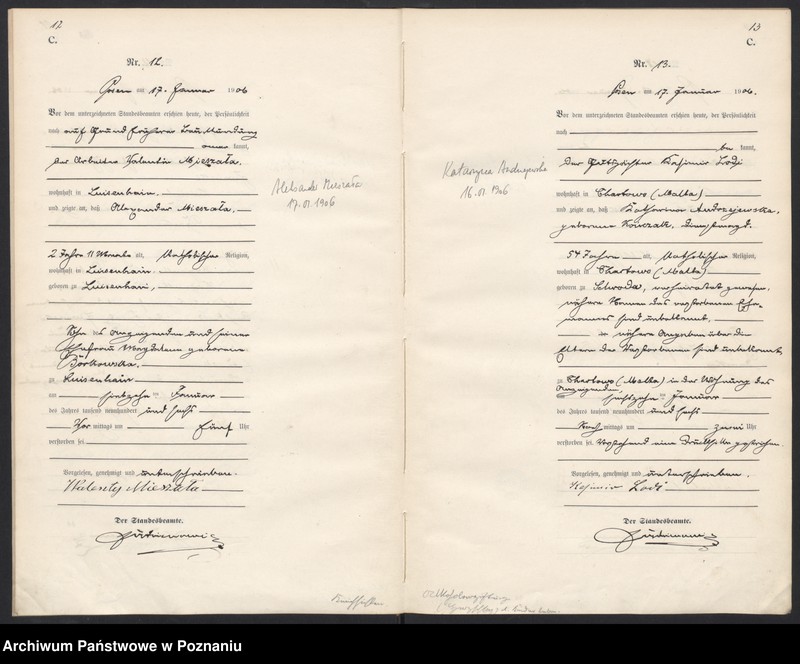 12
C.
Nr. 12.
Posen am 17. Januar 1906
Vor dem unterzeichneten Standesbeamten erschien heute, der Persönlichkeit
nach auf Grund
kannt,
der Arbeiter Valentin Mieszała.
wohnhaft in Luisenhain.
und zeigte an, daß Alexander Mieszała,
2 Jahre 11 Monate alt, katholischer Religion,
wohnhaft in Luisenhain
geboren zu Luisenhain,
Sohn des Anzeigenden und seiner
Ehefrau Magdalena geborene
Borkowska,
zu Luisenhain
am siebzehn ten Januar
des Jahres tausend neunhundert und sechs
Vor mittags um fünf Uhr
verstorben sei
Vorgelesen, genehmigt und unterschrieben.
Walenty Mieszała
Der Standesbeamte.
Aleksander Mieszała
17.01.1906
13
C.
Nr. 13.
Posen am 17. Januar 1906.
Vor dem unterzeichneten Standesbeamten erschien heute, der Persönlichkeit
nach
be kannt,
der Kasimir
wohnhaft in Chartowo (Malta)
und zeigte an, daß Katharina Andrzejewska,
geborene Kowzak,
54 Jahre alt, katholischer Religion,
wohnhaft in Chartowo (Malta)
geboren zu Schroda, verheiratet gewesen,
nähere Namen des verstorbenen Ehe-
mannes sind unbekannt,
nähere Angaben über die
Eltern der Verstorbenen sind unbekannt
zu Chartowo (Malta) in der Wohnung des
Anzeigenden,
am sechszehn ten Januar
des Jahres tausend neunhundert und sechs
Nach mittags um zwei Uhr
verstorben sei. Vorstehend eine Druckstelle gestrichen.
Vorgelesen, genehmigt und unterschrieben.
Der Standesbeamte.
Katarzyna Andrzejewska
16.01.1906
Archiwum Państwowe w Poznaniu